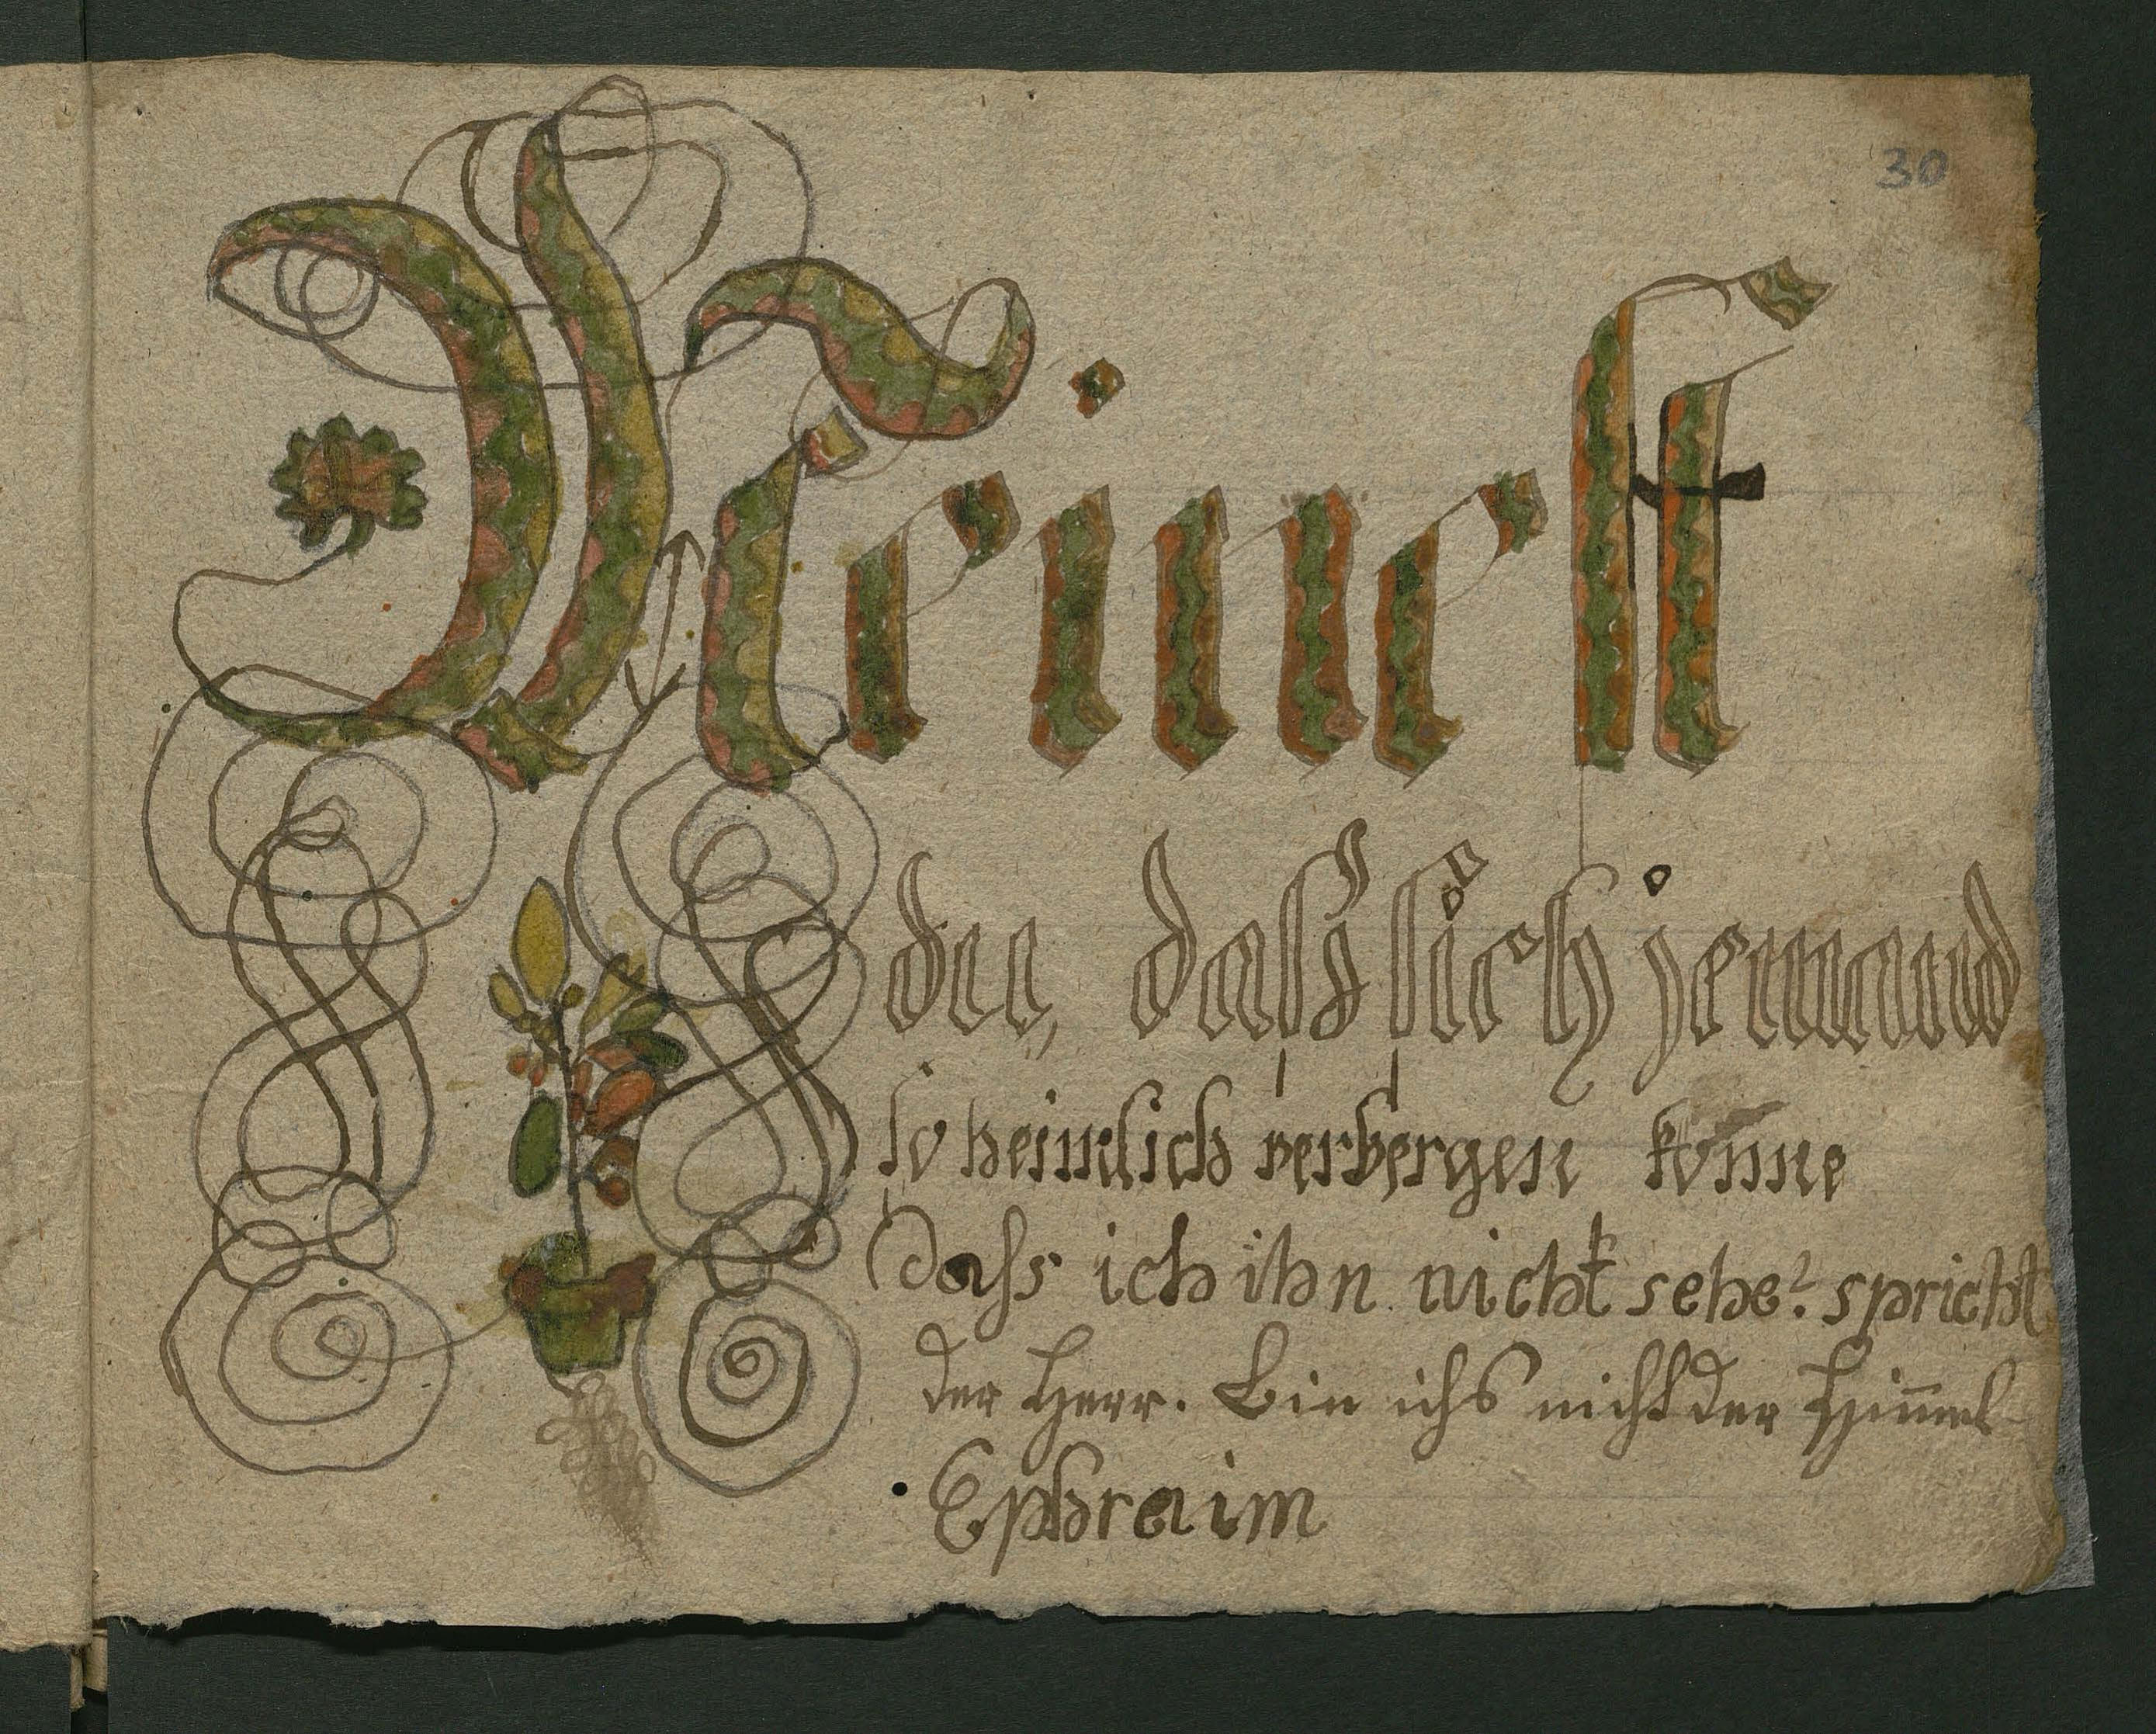 30
Meinest
du, daß sich jemand
so heimlich verbergen könne
Dass ich ihn nicht sehe? spricht
der Herr. Bin ichs nicht der Him̄el
Ephraim